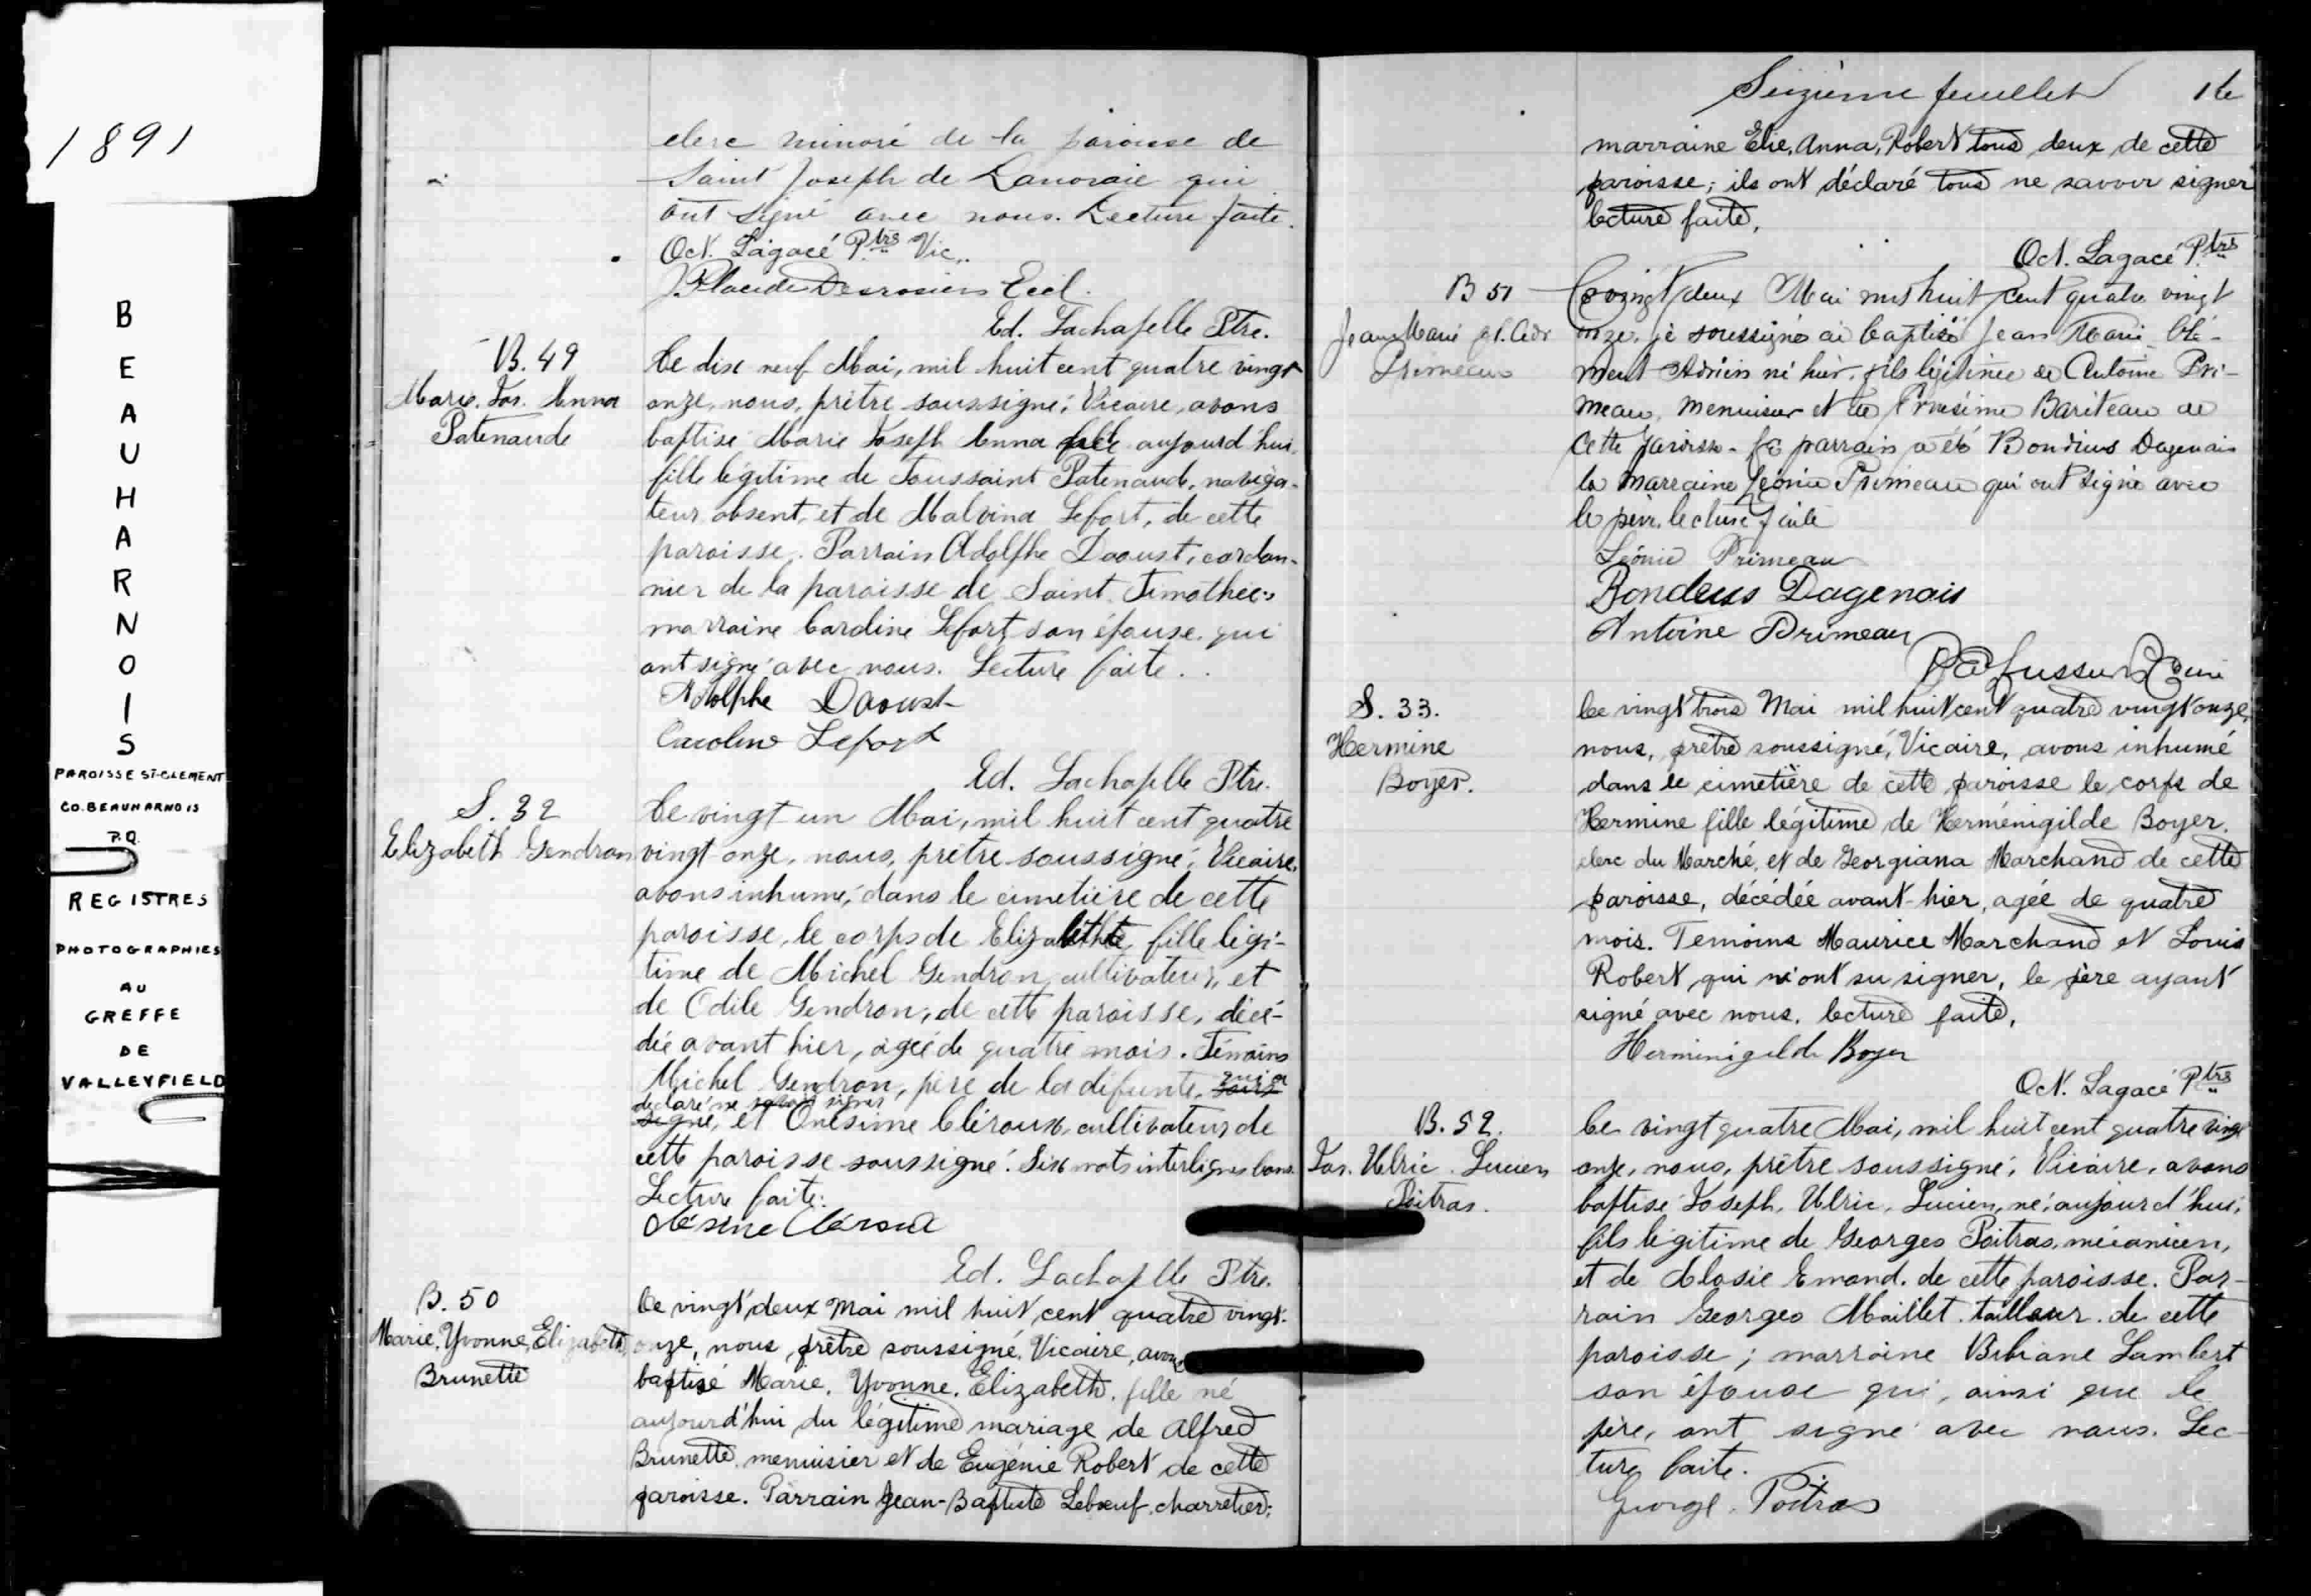 1891
BEAUHARNOIS
PAROISSE ST-CLEMENT
CO. BEAUHARNOIS
P.Q.
REGISTRES
PHOTOGRAPHIES
AU
GREFFE
DE
VALLEYFIELD
clerc minoré de la paroisse de
Saint Joseph de Lanoraie qui
ont signé avec nous. Lecture faite.
Oct. Lagacé Ptre Vic.
J. Placide Desrosiers Eccl.
Ed. Lachapelle Ptre.
B. 49
Marie. Jos. Anna
Patenaude
Le dix neuf Mai, mil huit cent quatre vingt
onze, nous, prêtre soussigné, Vicaire, avons
baptisé Marie Joseph Anna née aujourd'hui,
fille légitime de Toussaint Patenaude, naviga-
teur absent, et de Malvina Lefort, de cette
paroisse. Parrain Adolphe Daoust, cordon-
nier de la paroisse de Saint Timothée;
marraine Caroline Lefort son épouse qui
ont signé avec nous. Lecture faite.
Adolphe Daoust
Caroline Lefort
Ed. Lachapelle Ptre.
S. 32
Elizabeth Gendron
Le vingt un Mai, mil huit cent quatre
vingt onze, nous, prêtre soussigné, Vicaire,
avons inhumé, dans le cimetière de cette
paroisse, le corps de Elizabethte fille légi-
time de Michel Gendron cultivateur, et
de Odile Gendron, de cette paroisse, décé-
dée avant hier, agée de quatre mois. Témoins
Michel Gendron, père de la défunte, qui a
declaré ne savoir signer
signé, et Onésime Cléroux, cultivateur de
cette paroisse soussigné. Six mots interlignes bons.
Lecture faite.
Olésine Cléroux
Ed. Lachapelle Ptre.
B. 50
Marie, Yvonne, Elizabeth,
Brunette
Le vingt deux Mai mil huit cent quatre vingt-
onze, nous, prêtre soussigné, Vicaire, avons
baptisé Marie, Yvonne, Elizabeth, fille né
aujourd'hui du légitime mariage de Alfred
Brunette, menuisier et de Eugénie Robert de cette
paroisse. Parrain Jean-Baptiste Lebœuf, charretier;
Seizième feuillet 16
marraine Elie, Anna, Robert tous deux de cette
paroisse; ils ont déclaré tous ne savoir signer
lecture faite.
Oct. Lagacé Ptre
B 51
Jean Marie Cl. Adr
Primeau
Le vingt deux Mai mil huit cent quatre vingt
onze, je soussigné ai baptisé Jean Marie Clé-
ment Adrien né hier, fils légitime de Antoine Pri-
meau, menuisier et de Onésime Bariteau de
cette paroisse. Le parrain a été Bondius Dagenais
la marraine Léonie Primeau qui ont signé avec
le père, lecture faite
Léonie Primeau
Bondeus Dagenais
Antoine Primeau
Curé
S. 33.
Hermine
Boyer.
Le vingt trois Mai mil huit cent quatre vingt onze,
nous, prêtre soussigné, Vicaire, avons inhumé
dans le cimetière de cette paroisse le corps de
Hermine fille légitime de Herménigilde Boyer,
clerc du Marché, et de Georgiana Marchand de cette
paroisse, décédée avant-hier, agée de quatre
mois. Temoins Maurice Marchand et Louis
Robert, qui n'ont su signer, le père ayant
signé avec nous, lecture faite.
Herminigilde Boyer
Oct. Lagacé Ptre
B. 52.
Jos. Ulric. Lucien
Poitras.
Le vingt quatre Mai, mil huit cent quatre vingt
onze, nous, prêtre soussigné, Vicaire, avons
baptisé Joseph, Ulric, Lucien, né aujourd'hui,
fils légitime de Georges Poitras, mécanicien,
et de Closie Emond, de cette paroisse. Par-
rain Georges Maillet, tailleur, de cette
paroisse; marraine Bibiane Lambert
son épouse qui, ainsi que le
père, ont signé avec nous. Lec-
ture faite.
George Poitras